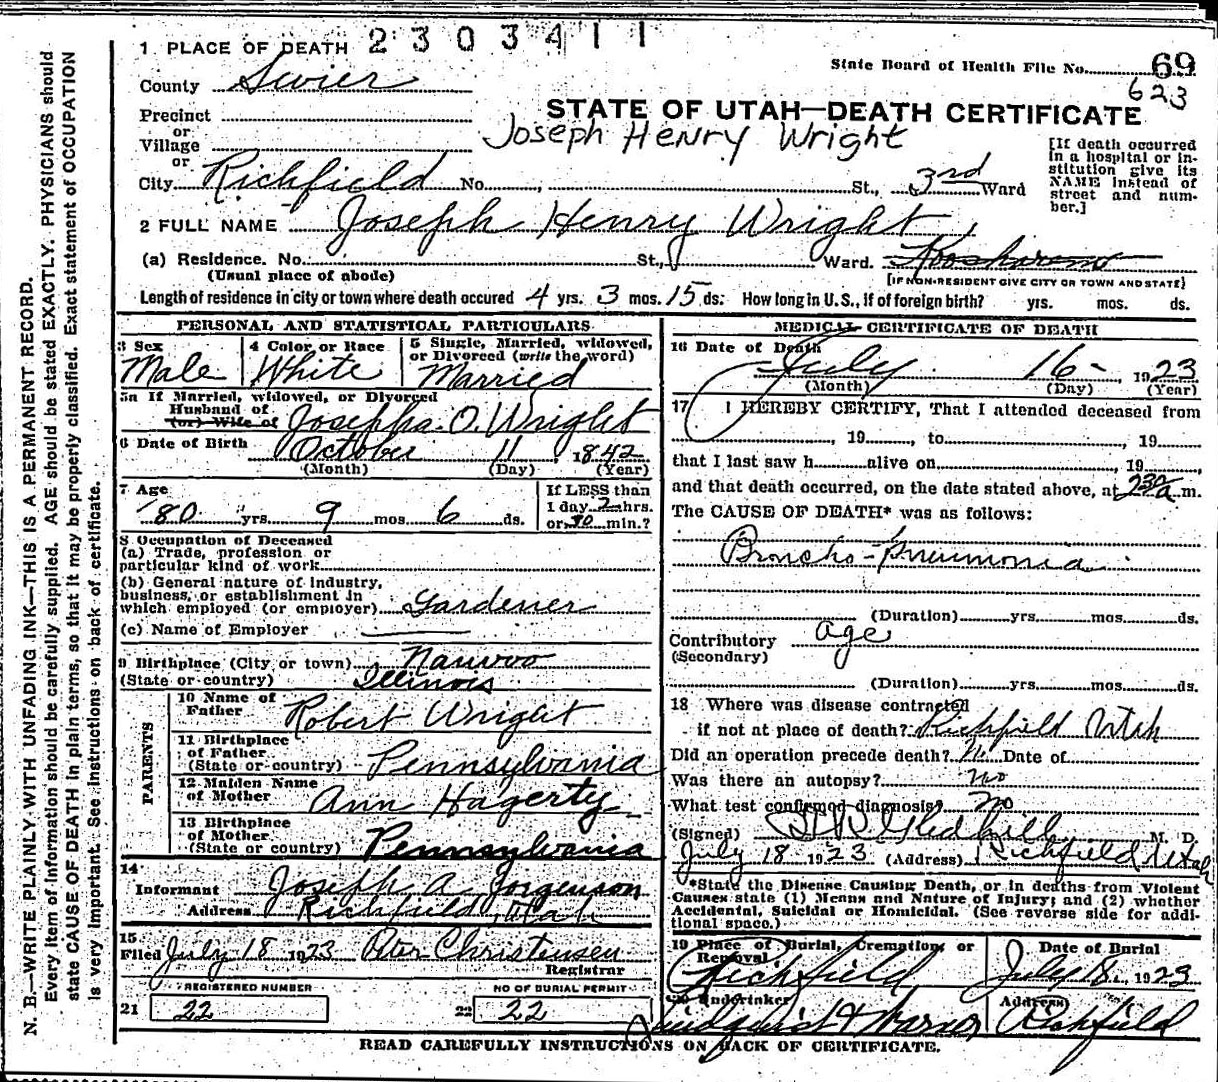 2303411
1 PLACE OF DEATH
State Board of Health File No. 69
623
County Sevier
STATE OF UTAH—DEATH CERTIFICATE
Precinct
or
Village
Joseph Henry Wright
or
City Richfield No. , St., 3rd Ward
[If death occurred in a hospital or in-
stitution give its
NAME instead of
street and num-
ber.]
2 FULL NAME Joseph Henry Wright
(a) Residence. No. St., Ward. Koosharem
(Usual place of abode)
[IF NON-RESIDENT GIVE CITY OR TOWN AND STATE]
Length of residence in city or town where death occured 4 yrs. 3 mos. 15 ds. How long in U.S., if of foreign birth? yrs. mos. ds.
PERSONAL AND STATISTICAL PARTICULARS
3 Sex
Male
4 Color or Race
White
5 Single, Married, widowed,
or Divorced (write the word)
Married
5a If Married, widowed, or Divorced
Husband of
(or) Wife of Josepha O. Wright
6 Date of Birth October 11, 1842
(Month) (Day) (Year)
7 Age
80 yrs 9 mos 6 ds.
If LESS than
1 day 2 hrs.
or 30 min.?
8 Occupation of Deceased
(a) Trade, profession or
particular kind of work
(b) General nature of industry,
business, or establishment in
which employed (or employer) Gardener
(c) Name of Employer
9 Birthplace (City or town) Nauvoo
(State or country) Illinois
PARENTS
10 Name of
Father Robert Wright
11 Birthplace
of Father
(State or country) Pennsylvania
12 Maiden Name
of Mother Ann Hagerty
13 Birthplace
of Mother
(State or country) Pennsylvania
14
Informant Joseph A. Jorgenson
Address Richfield, Utah
15
Filed July 18 1923 Peter Christensen
Registrar
REGISTERED NUMBER
21 22
NO OF BURIAL PERMIT
22 22
MEDICAL CERTIFICATE OF DEATH
16 Date of Death
July 16 - 1923
(Month) (Day) (Year)
17 I HEREBY CERTIFY, That I attended deceased from
, 19 , to , 19
that I last saw h alive on , 19 ,
and that death occurred, on the date stated above, at 230 a m.
The CAUSE OF DEATH* was as follows:
Broncho-Pneumonia
(Duration) yrs. mos. ds.
Contributory age
(Secondary)
(Duration) yrs. mos. ds.
18 Where was disease contracted
if not at place of death? Richfield Utah
Did an operation precede death? No Date of
Was there an autopsy? no
What test confirmed diagnosis? no
(Signed) M. D.
July 18 1923 (Address) Richfield Utah
*State the Disease Causing Death, or in deaths from Violent
Causes state (1) Means and Nature of Injury; and (2) whether
Accidental, Suicidal or Homicidal. (See reverse side for addi-
tional space.)
19 Place of Burial, Cremation or
Removal
Richfield
Date of Burial
July 18, 1923
20 Undertaker
Address
Richfield
READ CAREFULLY INSTRUCTIONS ON BACK OF CERTIFICATE.
N. B.—WRITE PLAINLY WITH UNFADING INK—THIS IS A PERMANENT RECORD.
Every item of information should be carefully supplied. AGE should be stated EXACTLY. PHYSICIANS should
state CAUSE OF DEATH in plain terms, so that it may be properly classified. Exact statement of OCCUPATION
is very important. See instructions on back of certificate.